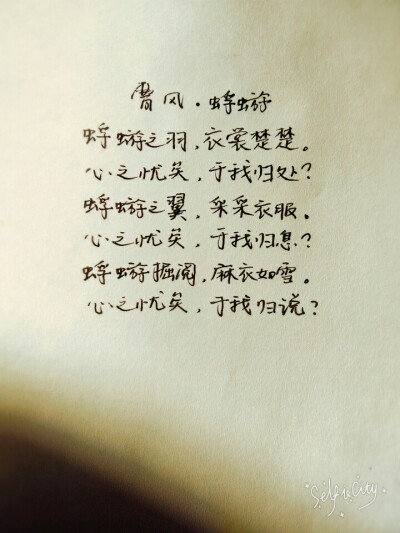 曹风·蜉蝣
蜉蝣之羽,衣裳楚楚。
心之忧矣,于我归处?
蜉蝣之翼,采采衣服。
心之忧矣,于我归息?
蜉蝣掘阅,麻衣如雪。
心之忧矣,于我归说?
Self is City